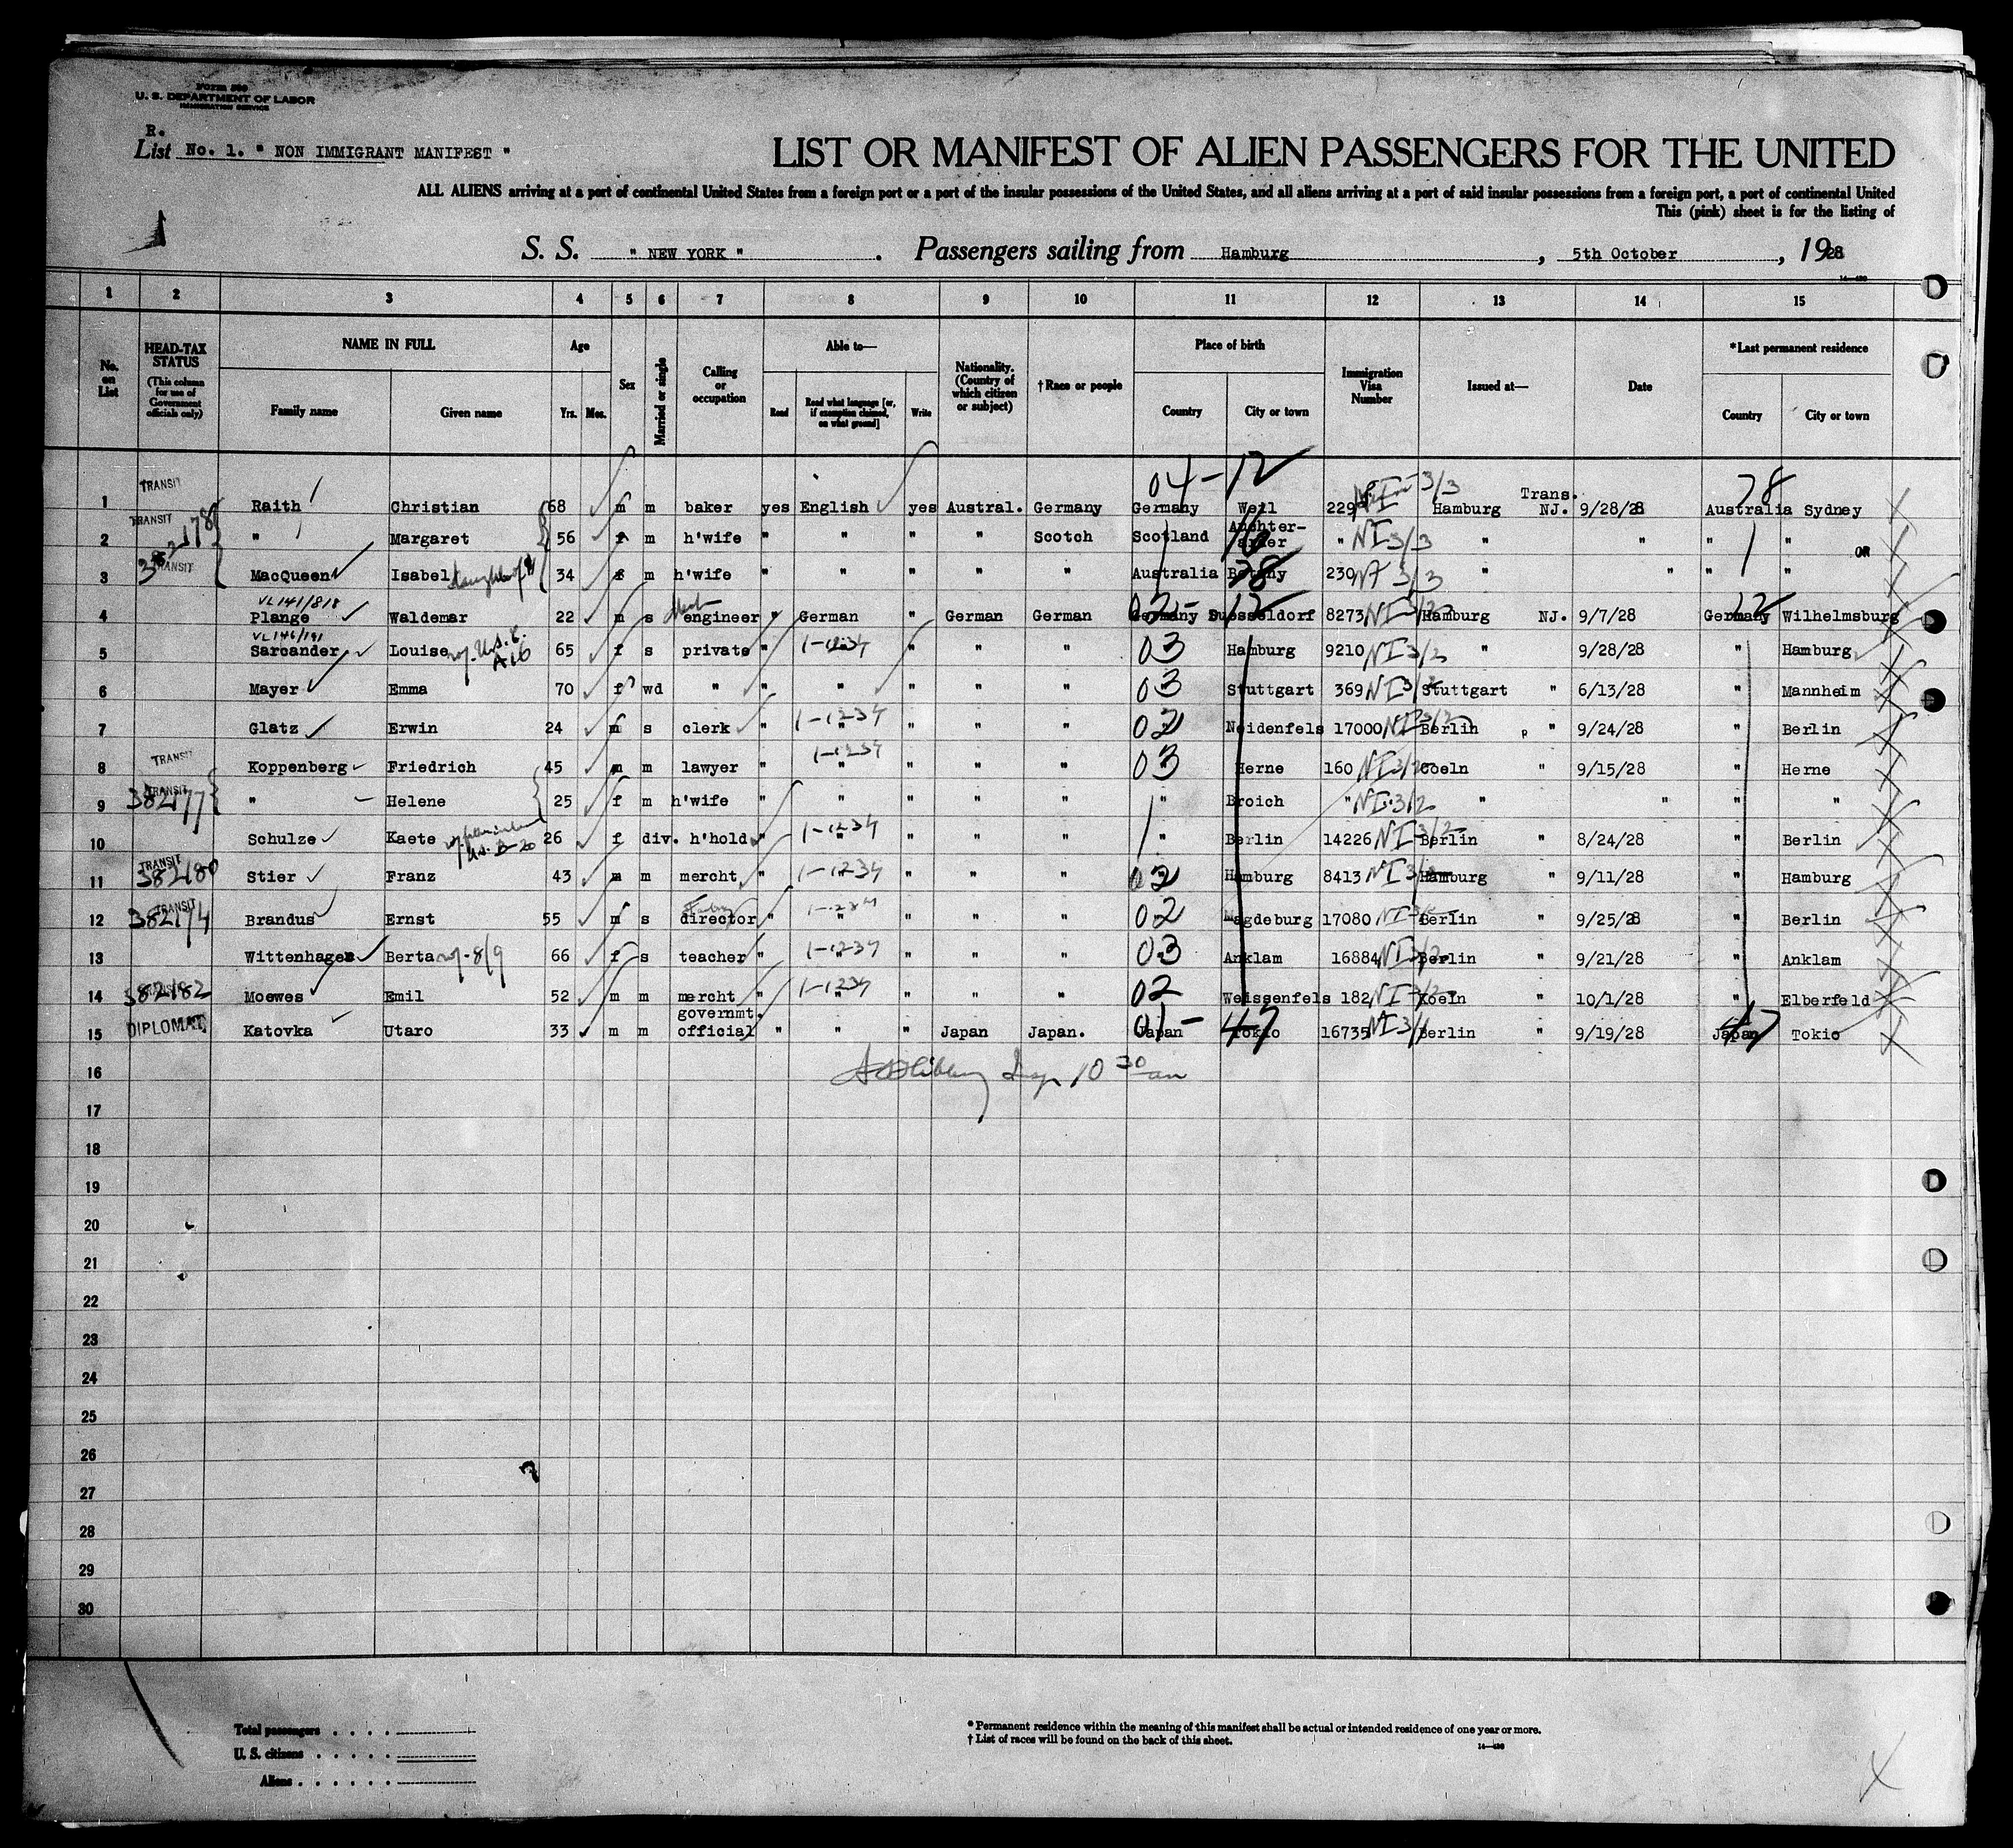 Form 500
U. S. DEPARTMENT OF LABOR
IMMIGRATION SERVICE
R.
List No. 1. " NON IMMIGRANT MANIFEST "
LIST OR MANIFEST OF ALIEN PASSENGERS FOR THE UNITED
ALL ALIENS arriving at a port of continental United States from a foreign port or a port of the insular possessions of the United States, and all aliens arriving at a port of said insular possessions from a foreign port, a port of continental United
This (pink) sheet is for the listing of
1
S. S. " NEW YORK " . Passengers sailing from Hamburg , 5th October , 1928
1 2 3 4 5 6 7 8 9 10 11 12 13 14 15
No. on List
HEAD-TAX STATUS
(This column for use of Government officials only)
NAME IN FULL
Family name Given name
Age
Yrs. Mos.
Sex
Married or single
Calling or occupation
Able to—
Read Read what language [or, if exemption claimed, on what ground] Write
Nationality. (Country of which citizen or subject)
† Race or people
Place of birth
Country City or town
Immigration Visa Number
Issued at—
Date
*Last permanent residence
Country City or town
04-12 28
1 TRANSIT Raith Christian 68 m m baker yes English yes Austral. Germany Germany Weil 229 NI 3/3 Hamburg Trans. NJ. 9/28/28 Australia Sydney
2 TRANSIT 382178 " Margaret 56 f m h'wife " " " " Scotch Scotland Auchter-arder 16 " NI 3/3 " " " "
3 TRANSIT MacQueen Isabel daughter of 34 f m h'wife " " " " " Australia Botany 28 230 NI 3/3 " " " " OR
VL141/818
4 Plange Waldemar 22 m s engineer " German " German German Germany 02- Duesseldorf 12 8273 NI 3/2 Hamburg NJ. 9/7/28 Germany 12 Wilhelmsburg
VL146/191
5 Sarcander Louise A16 65 f s private " 1-1234 " " " 03 Hamburg 9210 NI 3/2 " 9/28/28 " Hamburg
6 Mayer Emma 70 f wd " " " " " " 03 Stuttgart 369 NI 3/2 Stuttgart " 6/13/28 " Mannheim
7 Glatz Erwin 24 m s clerk " 1-1234 " " " 02 Neidenfels 17000 NI 3/2 Berlin " 9/24/28 " Berlin
8 TRANSIT Koppenberg Friedrich 45 m m lawyer " 1-1234 " " " " 03 Herne 160 NI 3/2 Coeln " 9/15/28 " Herne
9 TRANSIT 382177 " Helene 25 f m h'wife " " " " " " Broich " NI 3/2 " " " "
10 Schulze Kaete 26 f div. h'hold " 1-1234 " " " " " Berlin 14226 NI 3/2 Berlin " 8/24/28 " Berlin
11 TRANSIT 382180 Stier Franz 43 m m mercht. " 1-1234 " " " 02 Hamburg 8413 NI 3/2 Hamburg " 9/11/28 " Hamburg
12 TRANSIT 382174 Brandus Ernst 55 m s director " 1-1234 " " " " 02 Magdeburg 17080 NI 3/2 Berlin " 9/25/28 " Berlin
13 Wittenhagen Berta 8/9 66 f s teacher " 1-1234 " " " " 03 Anklam 16884 NI 3/2 Berlin " 9/21/28 " Anklam
14 382182 Moewes Emil 52 m m mercht. " 1-1234 " " " " 02 Weissenfels 182 NI 3/2 Koeln " 10/1/28 " Elberfeld
15 DIPLOMAT Katovka Utaro 33 m m governmt. official " " " Japan Japan. Japan 01- Tokio 47 16735 NI 3/1 Berlin " 9/19/28 Japan 47 Tokio
16 10 30 am
17
18
19
20
21
22
23
24
25
26
27
28
29
30
Total passengers . . . .
U. S. citizens . . . . .
Aliens . . . . . .
* Permanent residence within the meaning of this manifest shall be actual or intended residence of one year or more.
† List of races will be found on the back of this sheet.